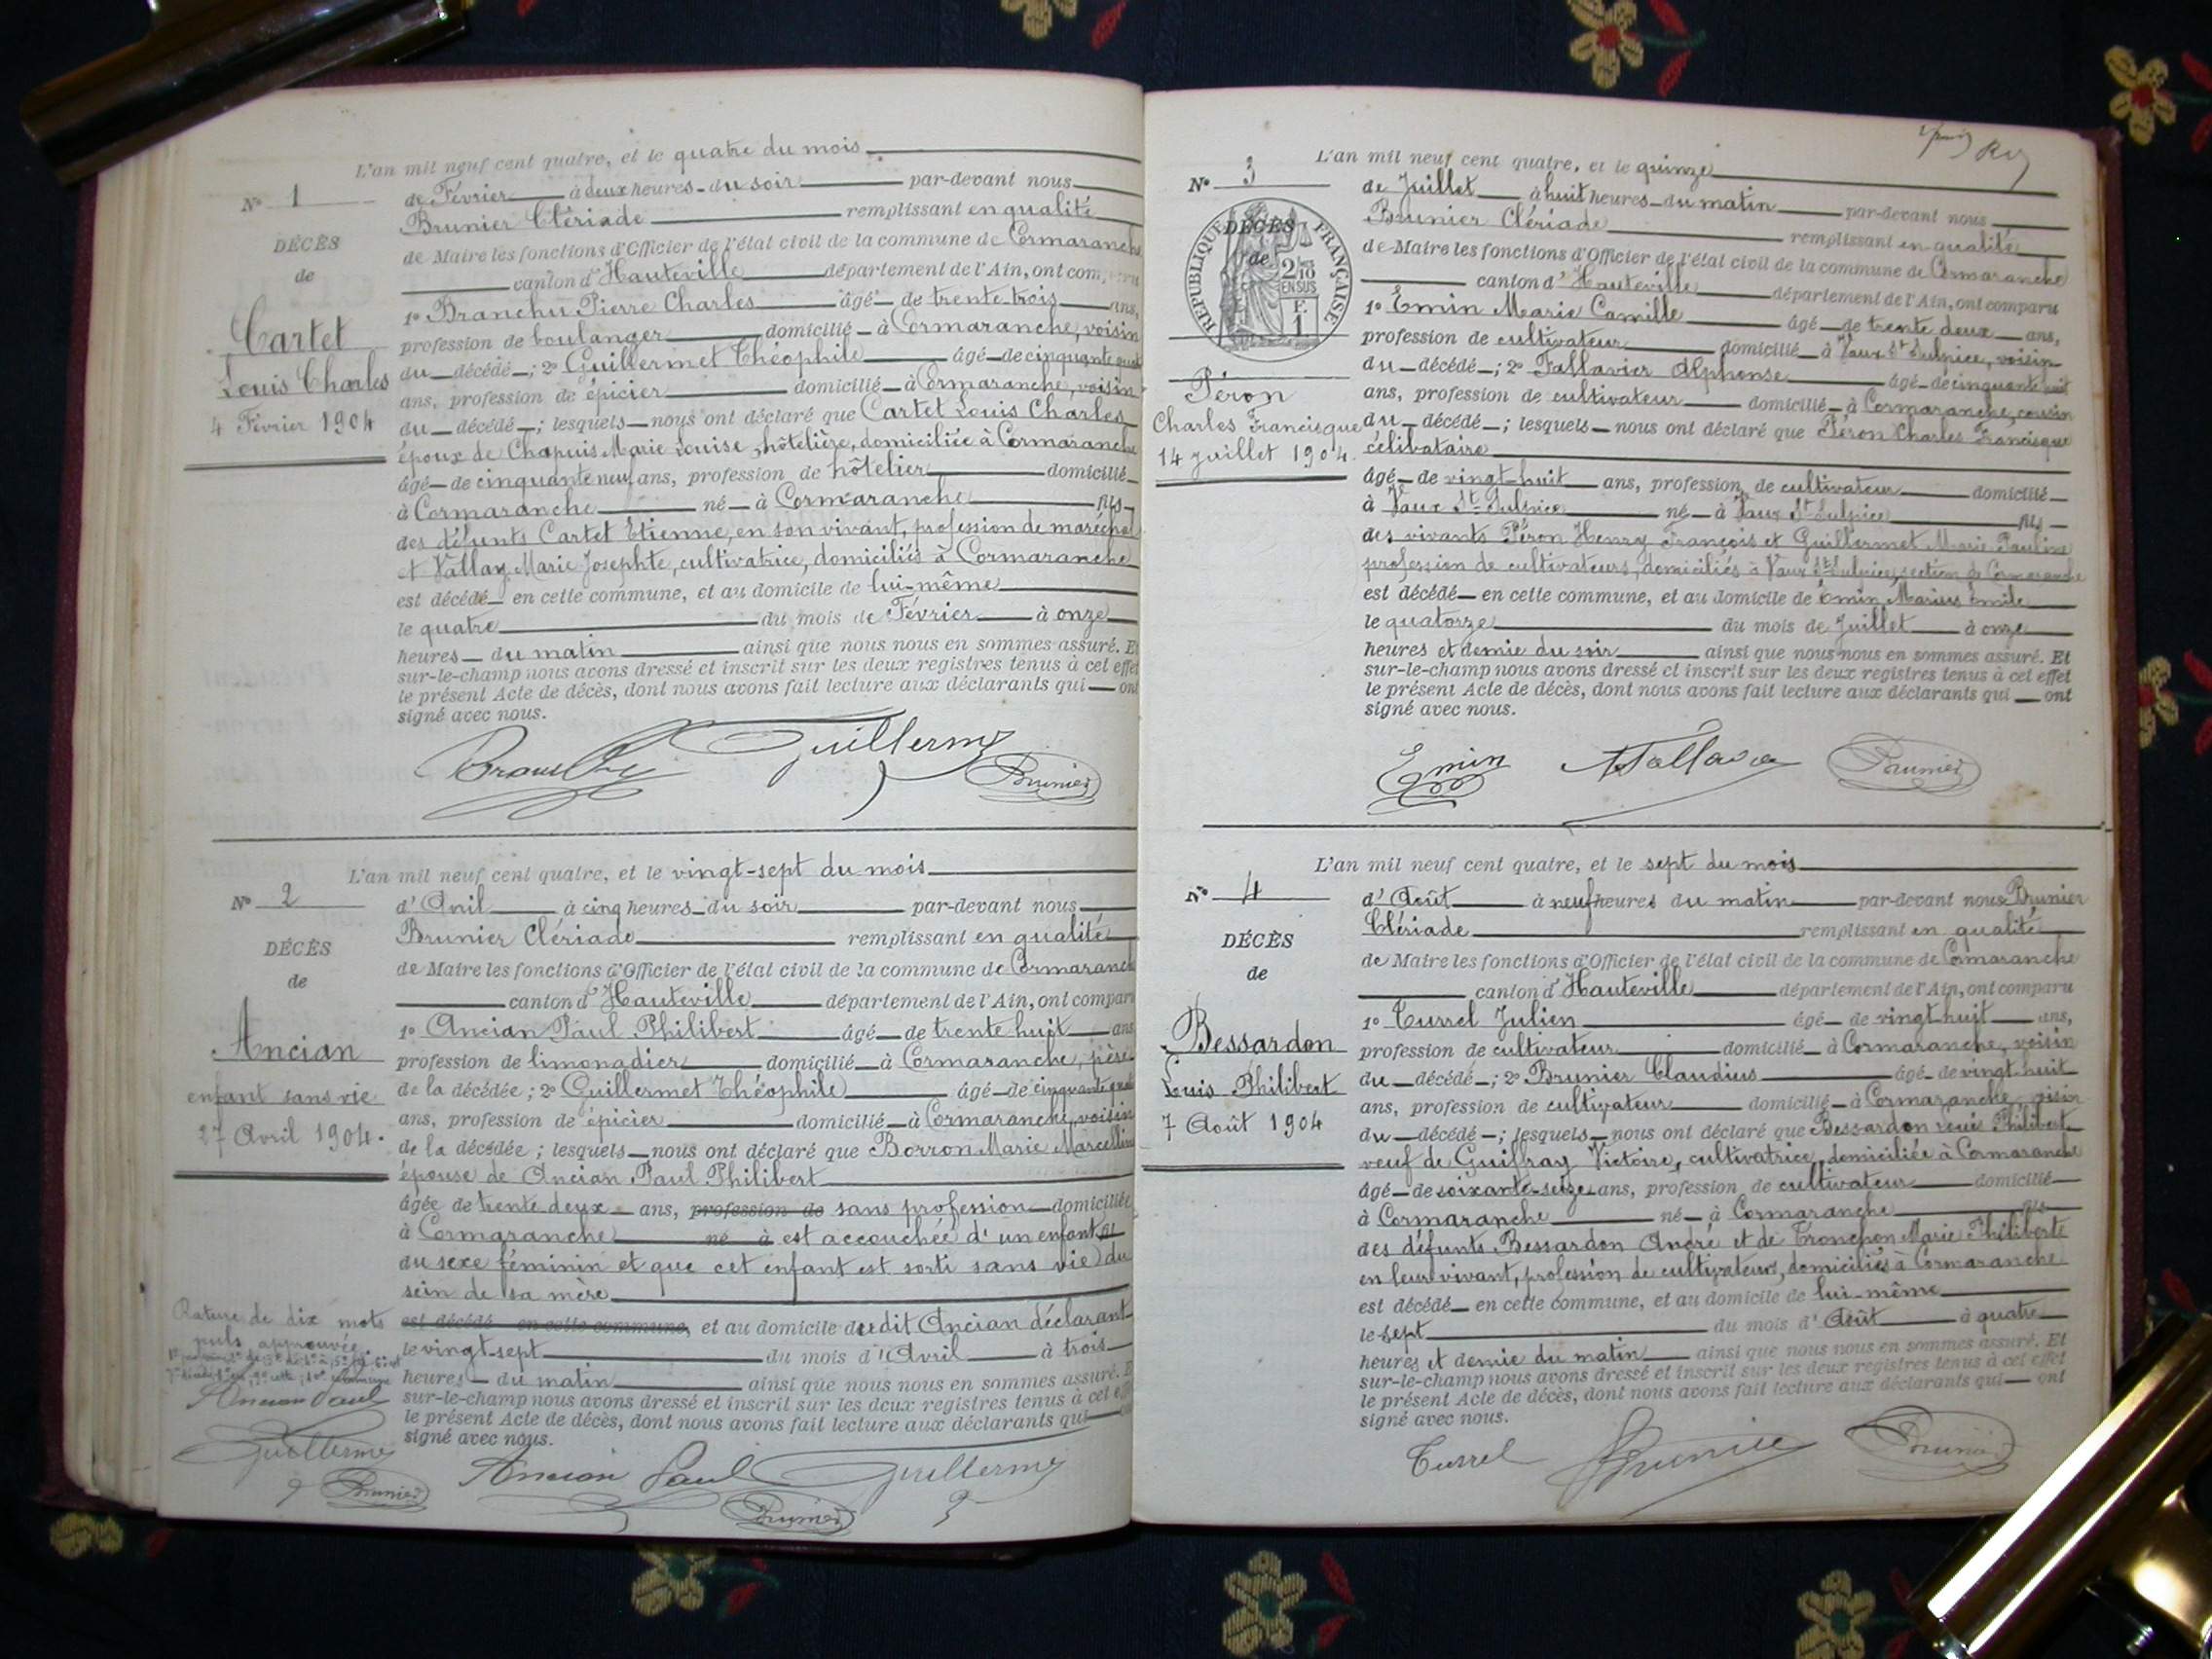 L'an mil neuf cent quatre, et le quatre du mois
N° 1
de Février à deux heures du soir par-devant nous
Brunier Clériade remplissant en qualité
DÉCÈS
de Maire les fonctions d'Officier de l'état civil de la commune de Cormaranche
de
canton d'Hauteville département de l'Ain, ont comparu
1° Branchu Pierre Charles âgé de trente trois ans,
Cartet
profession de boulanger domicilié à Cormaranche, voisin
Louis Charles
du décédé ; 2° Guillermet Théophile âgé de cinquante quatre
ans, profession de épicier domicilié à Cormaranche, voisin
4 Février 1904
du décédé ; lesquels nous ont déclaré que Cartet Louis Charles
époux de Chapuis Marie Louise, hôtelière, domiciliée à Cormaranche
âgé de cinquante neuf ans, profession de hôtelier domicilié
à Cormaranche né à Cormaranche fils
des défunts Cartet Etienne, en son vivant, profession de maréchal
et Vallay Marie Josephte, cultivatrice, domiciliés à Cormaranche
est décédé en cette commune, et au domicile de lui-même
le quatre du mois de Février à onze
heures du matin ainsi que nous nous en sommes assuré. Et
sur-le-champ nous avons dressé et inscrit sur les deux registres tenus à cet effet
le présent Acte de décès, dont nous avons fait lecture aux déclarants qui ont
signé avec nous.
Guillermet
Brunier
L'an mil neuf cent quatre, et le vingt-sept du mois
N° 2
d'Avril à cinq heures du soir par-devant nous
Brunier Clériade remplissant en qualité
DÉCÈS
de Maire les fonctions d'Officier de l'état civil de la commune de Cormaranche
de
canton d'Hauteville département de l'Ain, ont comparu
1° Ancian Paul Philibert âgé de trente huit ans
Ancian
profession de limonadier domicilié à Cormaranche, père
enfant sans vie
de la décédée ; 2° Guillermet Théophile âgé de cinquante quatre
27 Avril 1904.
ans, profession de épicier domicilié à Cormaranche, voisin
de la décédée ; lesquels nous ont déclaré que Borron Marie Marcelline
épouse de Ancian Paul Philibert
âgée de trente deux ans, profession de sans profession domiciliée
à Cormaranche né à est accouchée d'un enfant
du sexe féminin et que cet enfant est sorti sans vie du
sein de sa mère
Rature de dix mots
nuls approuvée.
est décédé en cette commune, et au domicile dudit Ancian déclarant
le vingt-sept du mois d'Avril à trois
heures du matin ainsi que nous nous en sommes assuré. Et
Ancian Paul
sur-le-champ nous avons dressé et inscrit sur les deux registres tenus à cet effet
le présent Acte de décès, dont nous avons fait lecture aux déclarants qui
signé avec nous.
Guillermet
Brunier
Ancian Paul Guillermet
Brunier
L'an mil neuf cent quatre, et le quinze
N° 3
de Juillet à huit heures du matin par-devant nous
Brunier Clériade remplissant en qualité
RÉPUBLIQUE FRANÇAISE
2/10 EN SUS
F. 1
DÉCÈS
de
de Maire les fonctions d'Officier de l'état civil de la commune de Cormaranche
canton d'Hauteville département de l'Ain, ont comparu
1° Emin Marie Camille âgé de trente deux ans,
profession de cultivateur domicilié à Vaux St Sulpice, voisin
du décédé ; 2° Tallavier Alphonse âgé de cinquante huit
Péron
ans, profession de cultivateur domicilié à Cormaranche, cousin
Charles Francisque
du décédé ; lesquels nous ont déclaré que Péron Charles Francisque
14 Juillet 1904.
célibataire
âgé de vingt-huit ans, profession de cultivateur domicilié
à Vaux St Sulpice né à Vaux St Sulpice fils
des vivants Péron Henry François et Guillermet Marie Pauline
profession de cultivateurs, domiciliés à Vaux St Sulpice, section de Cormaranche
est décédé en cette commune, et au domicile de Emin Marius Emile
le quatorze du mois de Juillet à onze
heures et demie du soir ainsi que nous nous en sommes assuré. Et
sur-le-champ nous avons dressé et inscrit sur les deux registres tenus à cet effet
le présent Acte de décès, dont nous avons fait lecture aux déclarants qui ont
signé avec nous.
Emin
Brunier
L'an mil neuf cent quatre, et le sept du mois
N° 4
d'Août à neuf heures du matin par-devant nous Brunier
Clériade remplissant en qualité
DÉCÈS
de Maire les fonctions d'Officier de l'état civil de la commune de Cormaranche
de
canton d'Hauteville département de l'Ain, ont comparu
1° Turrel Julien âgé de vingt-huit ans,
Bessardon
profession de cultivateur domicilié à Cormaranche, voisin
Louis Philibert
du décédé ; 2° Brunier Claudius âgé de vingt huit
7 Août 1904
ans, profession de cultivateur domicilié à Cormaranche, voisin
du décédé ; lesquels nous ont déclaré que Bessardon Louis Philibert
veuf de Guiffray Victoire, cultivatrice, domiciliée à Cormaranche
âgé de soixante-seize ans, profession de cultivateur domicilié
à Cormaranche né à Cormaranche fils
des défunts Bessardon André et de Tronchon Marie Philiberte
en leur vivant, profession de cultivateurs, domiciliés à Cormaranche
est décédé en cette commune, et au domicile de lui-même
le sept du mois d'Août à quatre
heures et demie du matin ainsi que nous nous en sommes assuré. Et
sur-le-champ nous avons dressé et inscrit sur les deux registres tenus à cet effet
le présent Acte de décès, dont nous avons fait lecture aux déclarants qui ont
signé avec nous.
Turrel Brunier Brunier